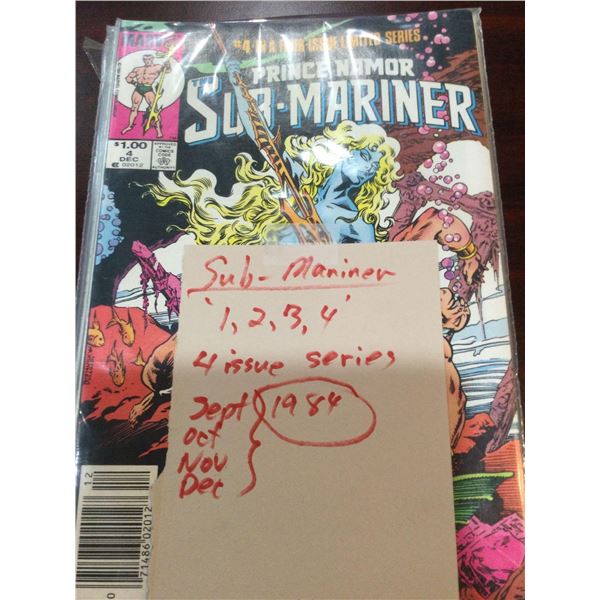 MARVEL
#4 IN A FOUR-ISSUE LIMITED SERIES
PRINCE NAMOR
SUB-MARINER
$1.00
4
DEC
02012
APPROVED
BY THE
COMICS
CODE
AUTHORITY
Sub-Mariner
'1, 2, 3, 4'
4 issue series
Sept 1984
Oct
Nov
Dec
12
0
71486 02012